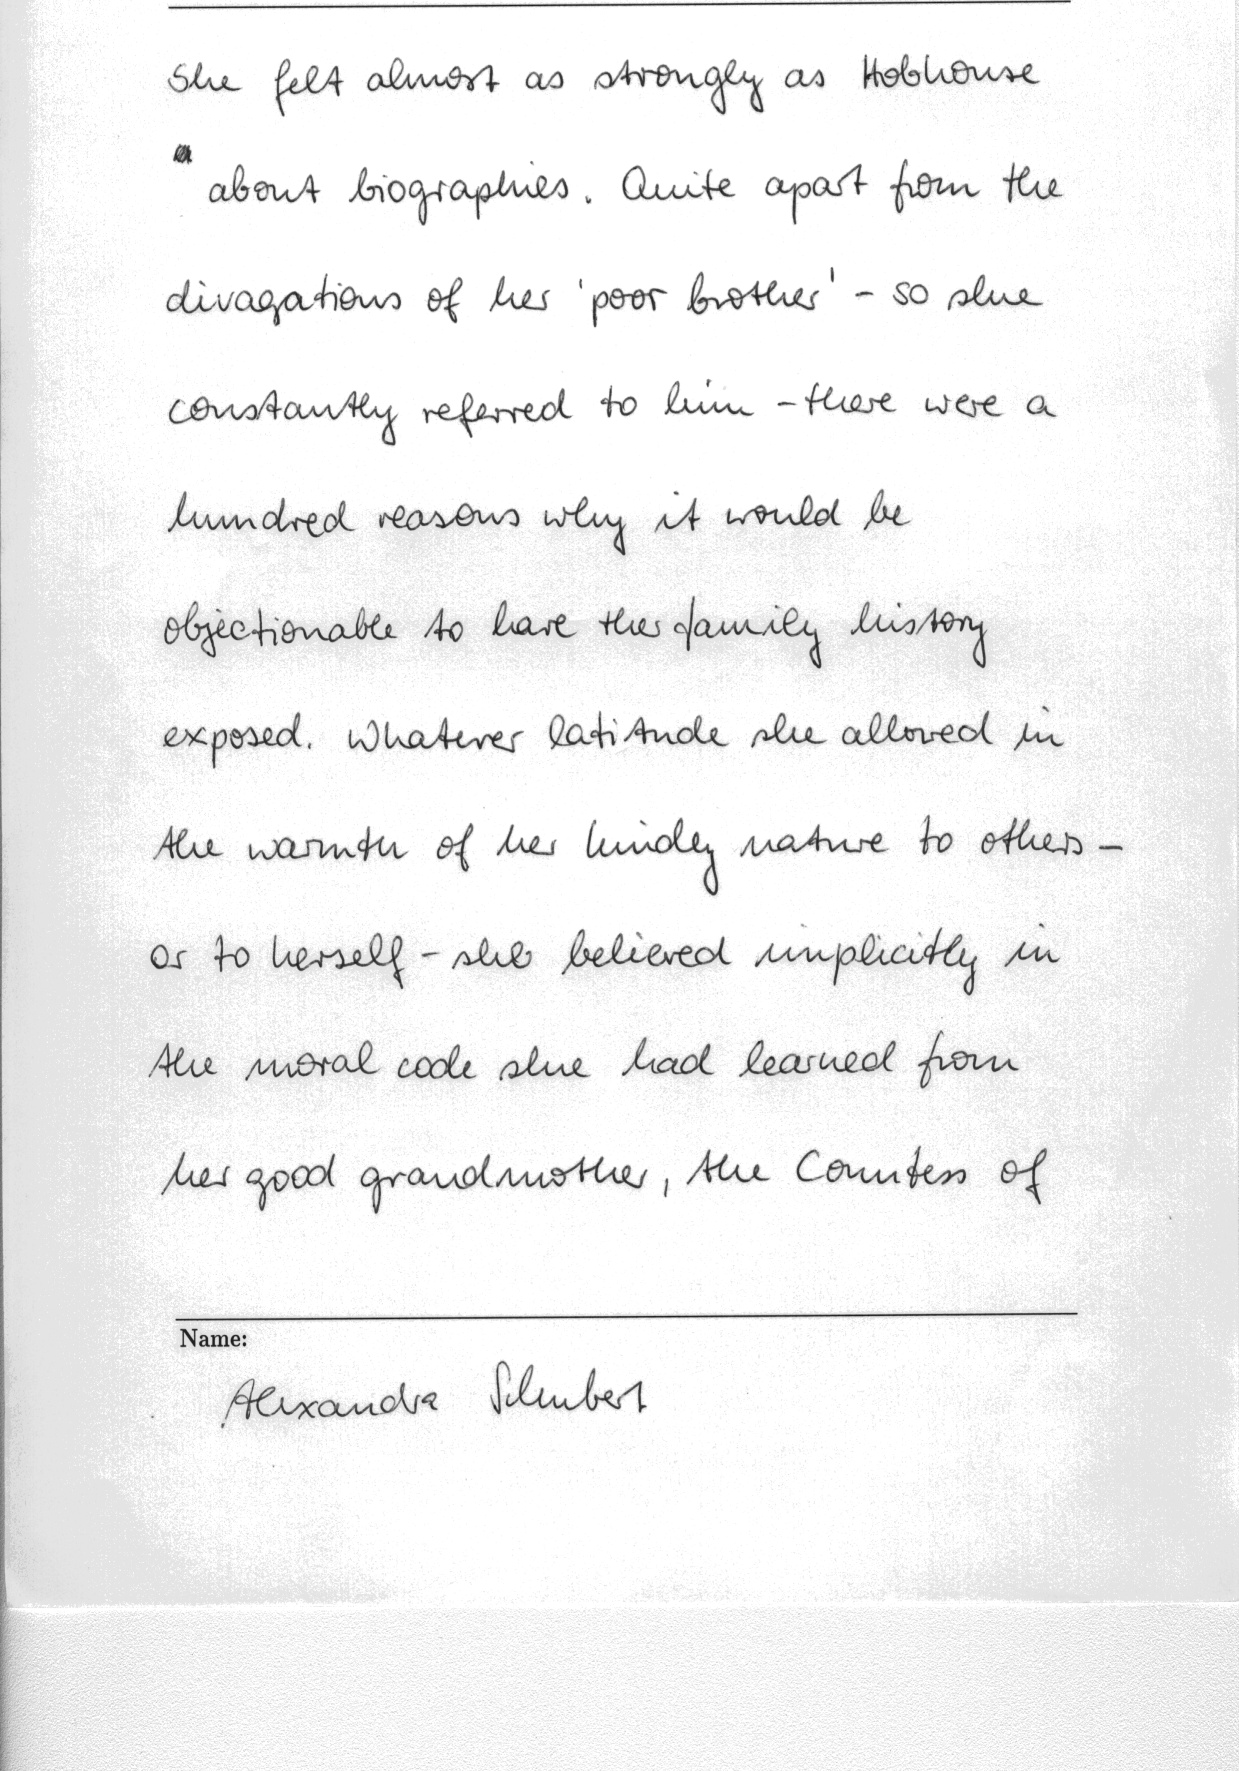 She felt almost as strongly as Hobhouse
about biographies. Quite apart from the
divagations of her 'poor brother' - so she
constantly referred to him - there were a
hundred reasons why it would be
objectionable to have the family history
exposed. Whatever latitude she allowed in
the warmth of her kindly nature to others -
or to herself - she believed implicitly in
the moral code she had learned from
her good grandmother, the Countess of
Name:
Alexandra Schubert